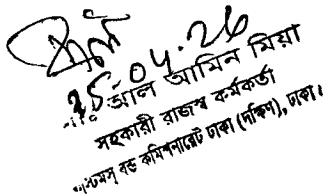 ২৪.০৭.২৪
আল আমিন মিয়া
সহকারী রাজস্ব কর্মকর্তা
কাস্টমস্ বন্ড কমিশনারেট ঢাকা (দক্ষিণ), ঢাকা।